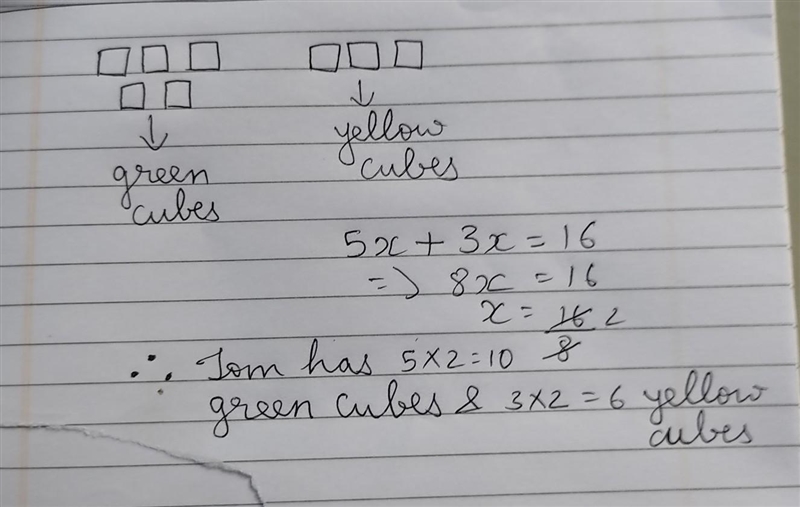 green cubes
yellow cubes
5x + 3x = 16
=> 8x = 16
x = 16/8 2
∴ Tom has 5×2=10
green cubes & 3×2 = 6 yellow
cubes